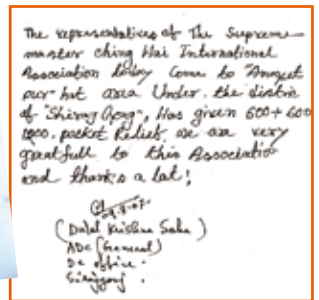 The representatives of The Supreme
master ching Hai International
Association today Come to "Amrject
pur" hat area Under the distric
of "Shiraj Gong", Has given 600+600
packet Relief, we are very
greatfull to this Association
and thanks a lat!
09.8.07
(Dulal Krishna Saha)
ADC (General)
Dc office.
Sirajgonj.